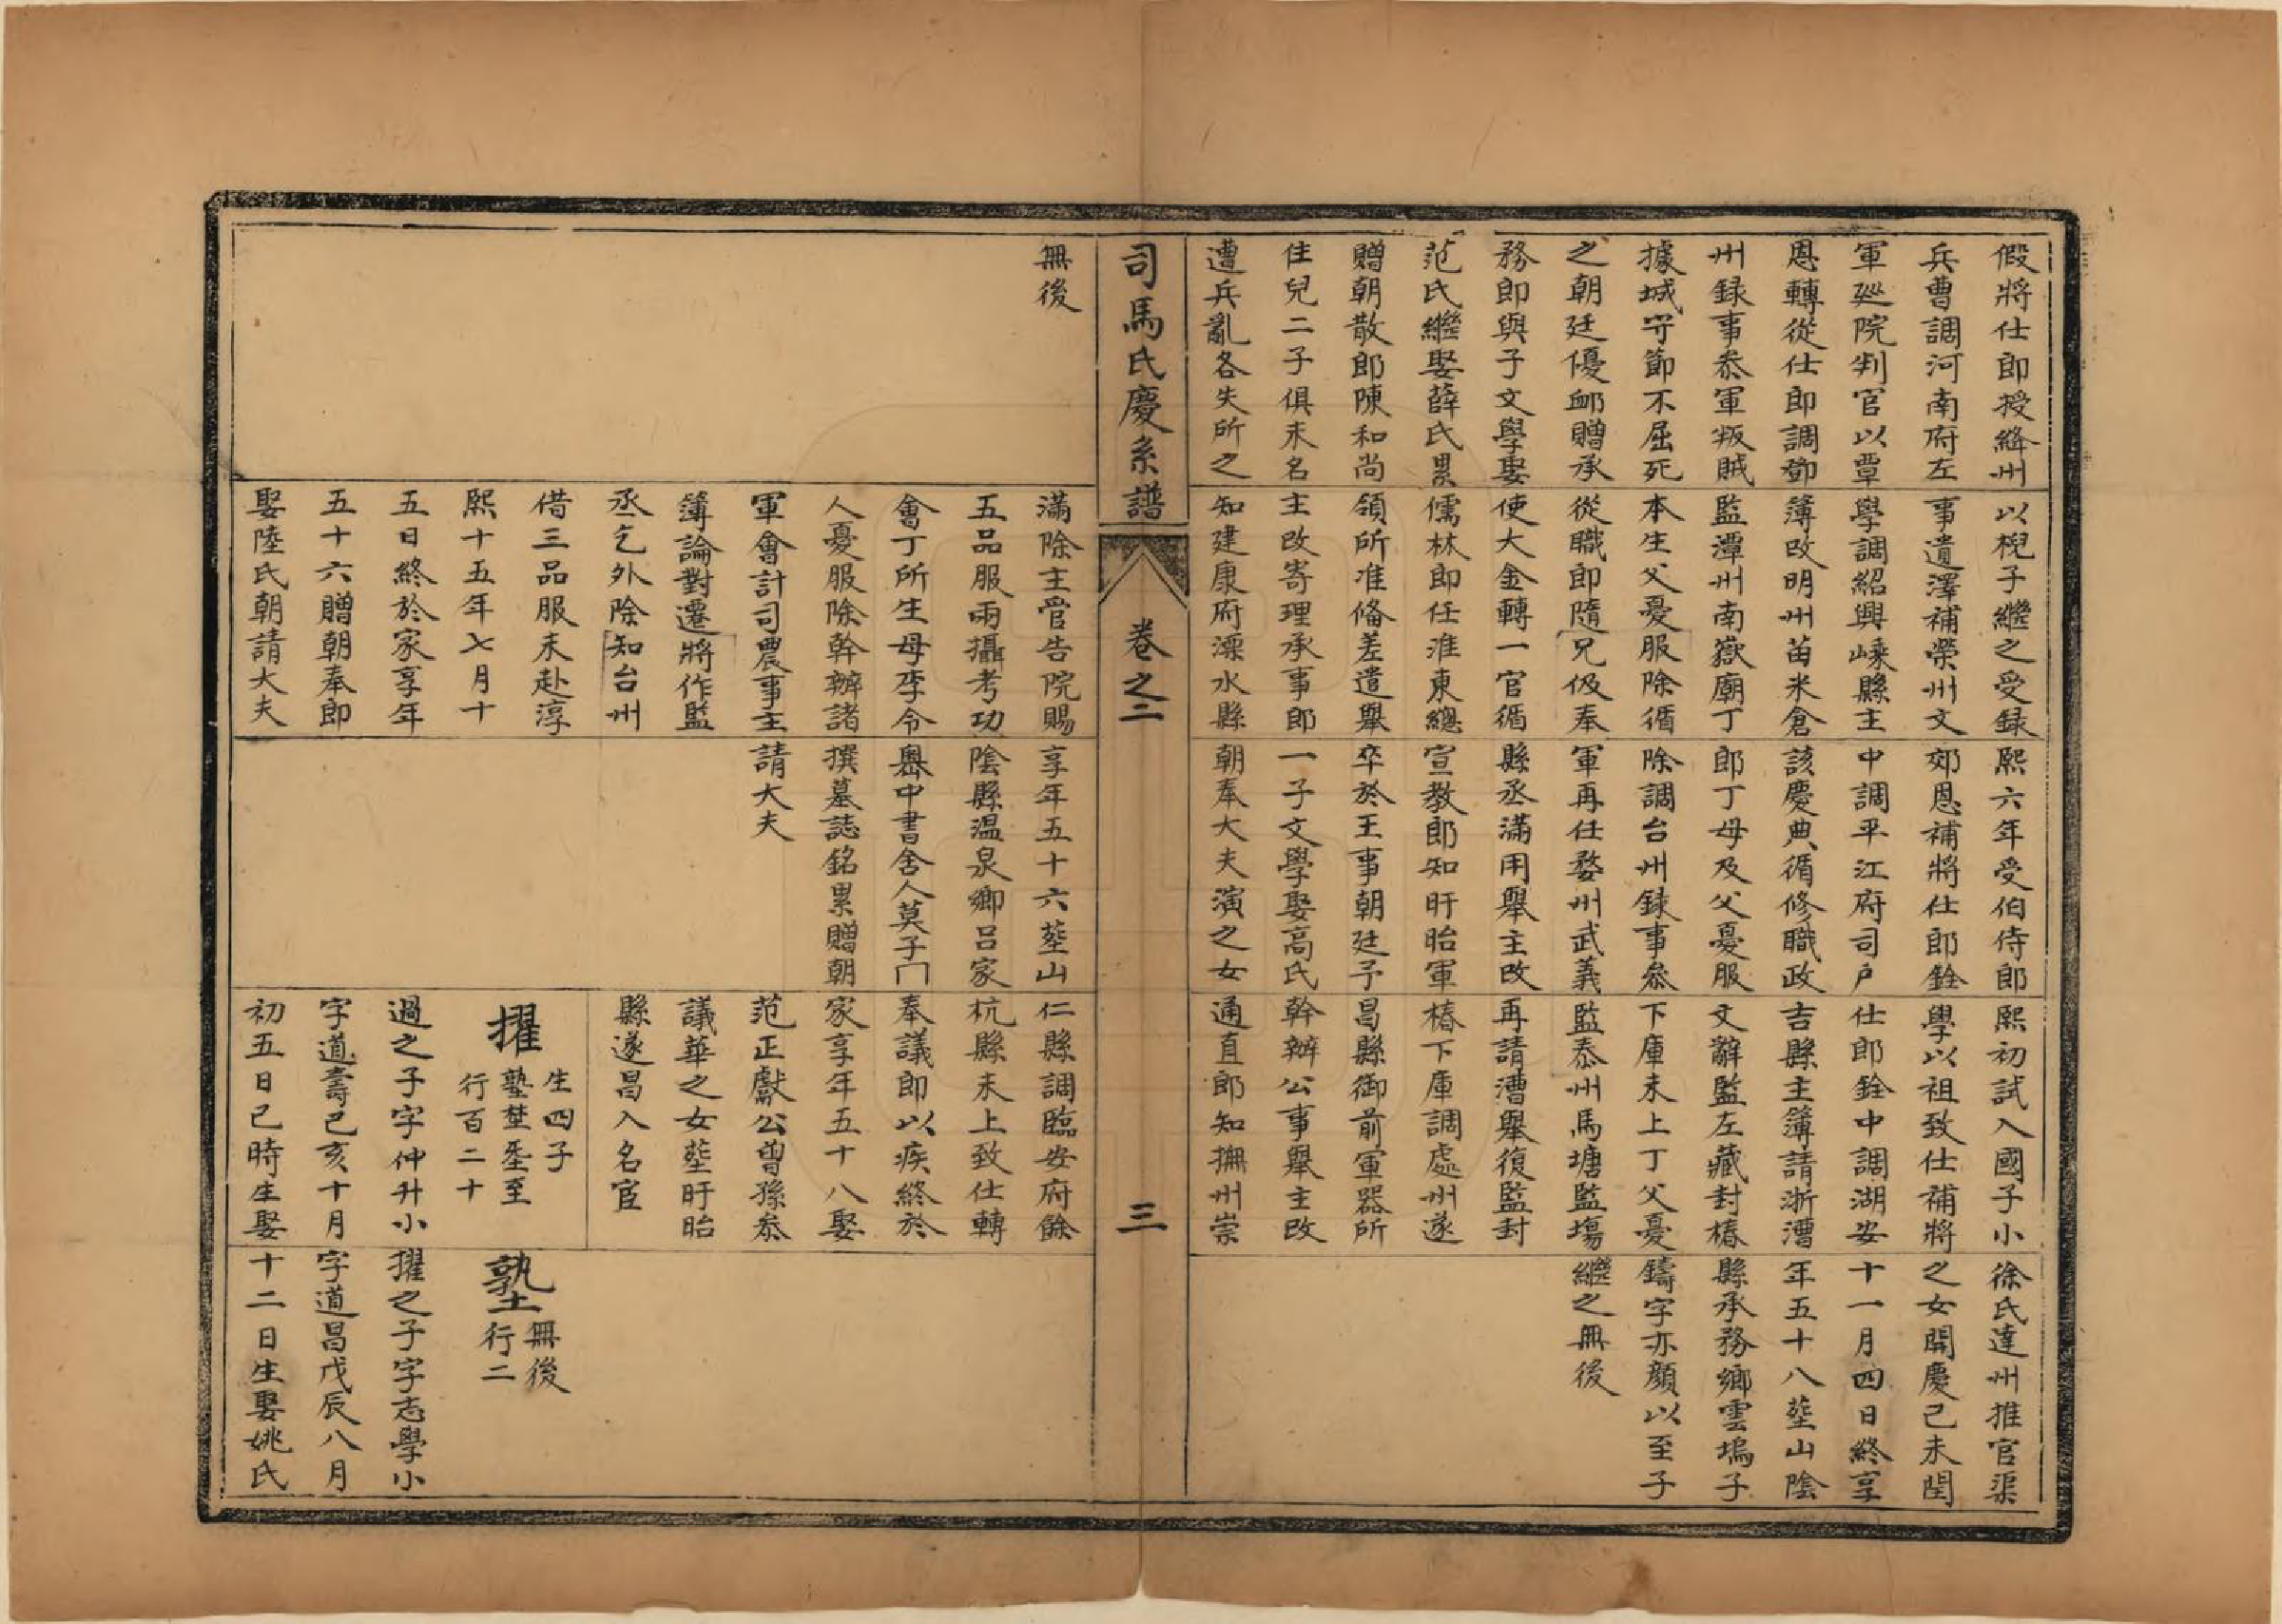 假將仕郎授絳州
兵曹調河南府左
軍廵院判官以覃
恩轉從仕郎調鄧
州録事叅軍叛賊
據城守節不屈死
之朝廷優䘏贈承
務郎與子文學娶
范氏繼娶薛氏累
贈朝散郎陳和尚
住兒二子俱未名
遭兵亂各失所之
以棿子繼之受録
事遺澤補榮州文
學調紹興嵊縣主
簿改明州苗米倉
監潭州南嶽廟丁
本生父憂服除循
從職郎隨兄伋奉
使大金轉一官循
儒林郎任淮東總
領所准俻差遣舉
主改寄理承事郎
知建康府溧水縣
熙六年受伯侍郎
郊恩補將仕郎銓
中調平江府司户
該慶典循修職政
郎丁母及父憂服
除調台州録事叅
軍再任婺州武義
縣丞滿用舉主改
宣教郎知盱眙軍
卒於王事朝廷予
一子文學娶高氏
朝奉大夫演之女
熙初試入國子小
學以祖致仕補將
仕郎銓中調湖安
吉縣主簿請浙漕
文辭監左藏封樁
下庫未上丁父憂
監泰州馬塘監塲
再請漕舉復監封
樁下庫調處州遂
昌縣御前軍器所
幹辦公事舉主改
通直郎知撫州崇
徐氏達州推官渠
之女開慶己未閏
十一月四日終享
年五十八塟山陰
縣承務鄉雲塢子
鑄字亦顔以至子
繼之無後
司馬氏慶系譜
卷之二
三
無後
滿除主管告院賜
五品服兩攝考功
會丁所生母李令
人憂服除幹辦諸
軍會計司農事主
簿論對遷將作監
丞乞外除知台州
借三品服未赴淳
熙十五年七月十
五日終於家享年
五十六贈朝奉郎
娶陸氏朝請大夫
享年五十六塟山
陰縣温泉鄉吕家
嶴中書舍人莫子門
撰墓誌銘累贈朝
請大夫
仁縣調臨安府餘
杭縣未上致仕轉
奉議郎以疾終於
家享年五十八娶
范正獻公曽孫叅
議華之女塟盱眙
縣遂昌入名宦
擢
生四子
塾埜垕至
行百二十
過之子字仲升小
字道壽己亥十月
初五日巳時生娶
塾
無後
行二
擢之子字志學小
字道昌戊辰八月
十二日生娶姚氏